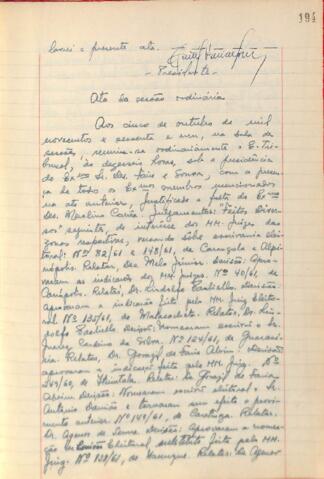 194
lavrei a presente ata.
- Presidente -
Ata da sessão ordinária.
Aos cinco de outubro de mil
novecentos e sessenta e um, na sala de
sessões, reuniu-se ordinariamente o E. Tri-
bunal, às dezesseis horas, sob a presidência
do Exmo Sr. Des. Faria e Sousa, com a presen-
ça de todos os Exmos membros mencionados
na ata anterior, justificada a falta do Exmo
Des. Julgamentos: "Feitos Diver-
sos" seguintes, de interesse dos MM. Juizes das
zonas respectivas, versando sôbre escrivania elei-
toral: Nº 82/61 e 148/61, de Carangola e Alpi-
nópolis. Relator, Des. Melo Júnior. Decisão: Apro-
varam as indicações dos MM. Juizes. Nº 40/61, de
Relator, Dr. Lindolfo Decisão:
Aprovaram a indicação feita pelo MM. Juiz Eleitoral.
Nº 135/61, de Malacacheta. Relator, Dr. Lin-
dolfo Decisão: Nomearam escrivão o Sr.
da Silva. Nº 124/61, de
Relator, Dr. Gonzaga de Faria Alvim. Decisão:
aprovaram a indicação feita pelo MM. Juiz. Nº
/61, de Relator: Dr. de Faria
Alvim. Decisão: Nomearam escrivão eleitoral o Sr.
Antonio Damião e tornaram sem efeito o provi-
mento anterior. Nº 149/61, de Caratinga. Relator:
Dr. Agenor de Senna. Decisão: Aprovaram a nomea-
ção Escrivão Eleitoral substituto feita pelo MM.
Juiz. Nº 128/61, de Relator: Dr. Agenor